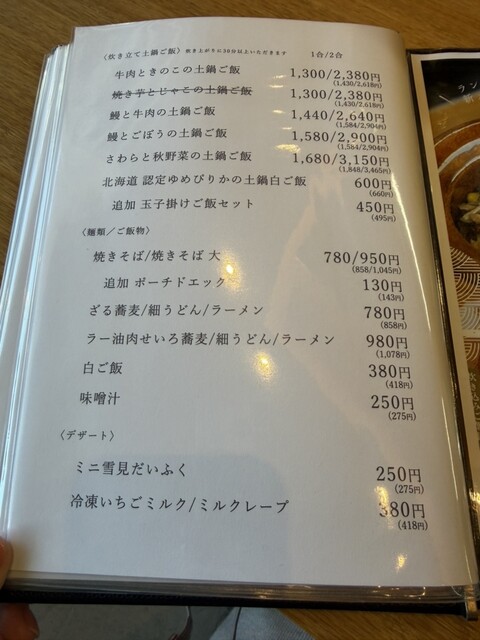 〈炊き立て土鍋ご飯〉炊き上がりに30分以上いただきます 1合/2合
牛肉ときのこの土鍋ご飯 1,300/2,380円
(1,430/2,618円)
焼き芋とじゃこの土鍋ご飯 1,300/2,380円
(1,430/2,618円)
鰻と牛肉の土鍋ご飯 1,440/2,640円
(1,584/2,904円)
鰻とごぼうの土鍋ご飯 1,580/2,900円
(1,584/2,904円)
さわらと秋野菜の土鍋ご飯 1,680/3,150円
(1,848/3,465円)
北海道 認定ゆめぴりかの土鍋白ご飯 600円
(660円)
追加 玉子掛けご飯セット 450円
(495円)
〈麺類/ご飯物〉
焼きそば/焼きそば 大 780/950円
(858/1,045円)
追加 ポーチドエッグ 130円
(143円)
ざる蕎麦/細うどん/ラーメン 780円
(858円)
ラー油肉せいろ蕎麦/細うどん/ラーメン 980円
(1,078円)
白ご飯 380円
(418円)
味噌汁 250円
(275円)
〈デザート〉
ミニ雪見だいふく 250円
(275円)
冷凍いちごミルク/ミルクレープ 380円
(418円)